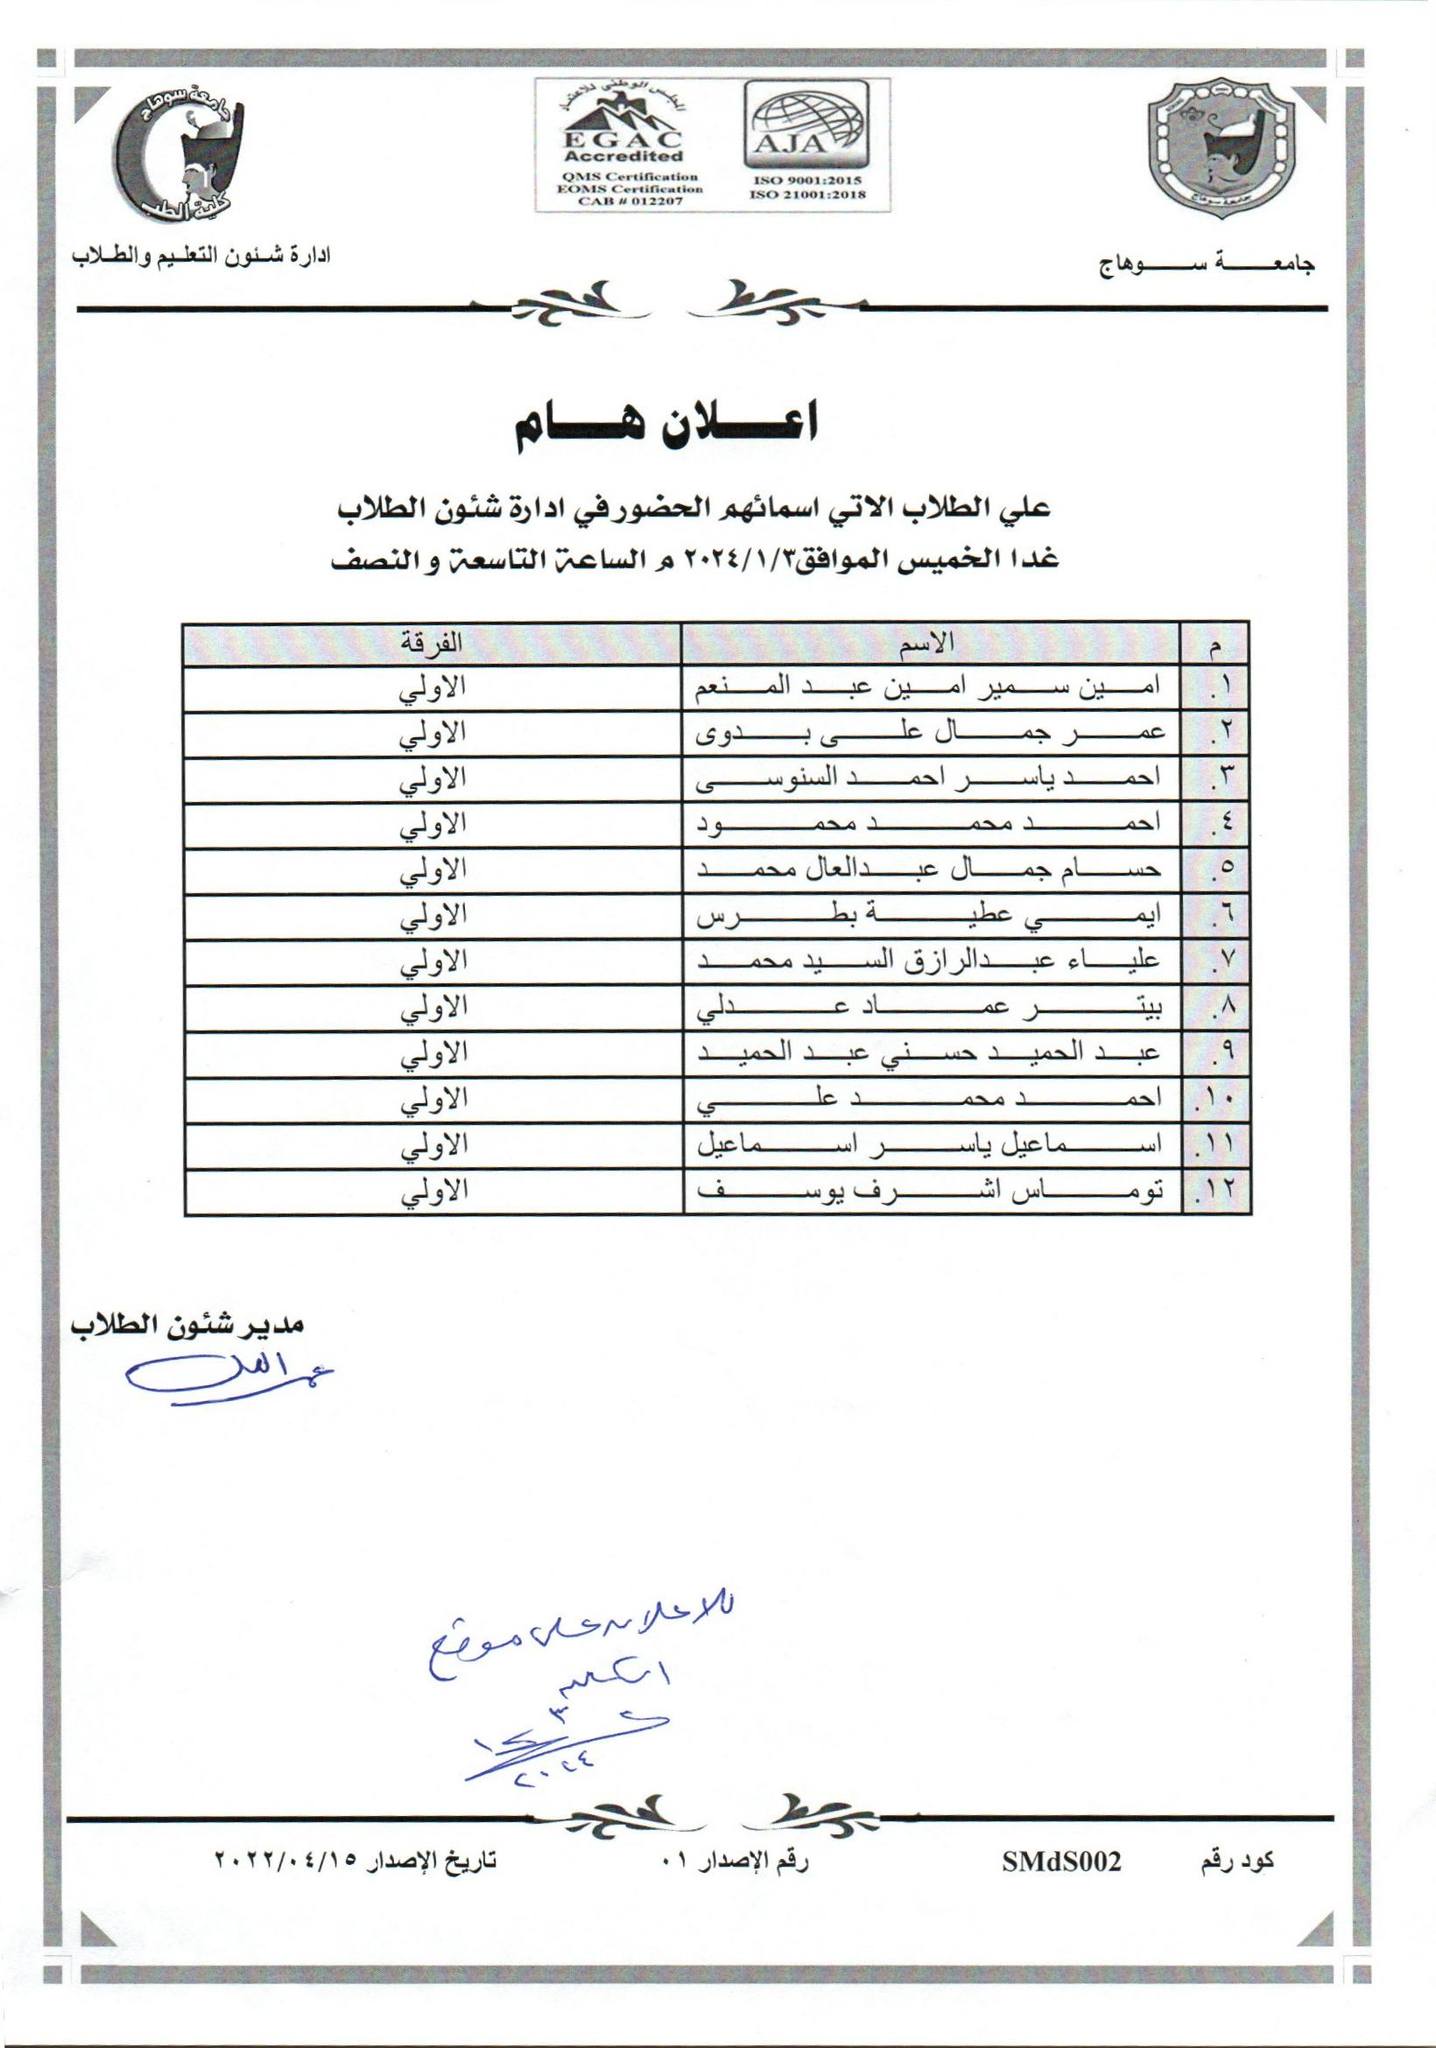 جامعة سوهاج
كلية الطب
المجلس الوطني للاعتماد
EGAC
Accredited
QMS Certification
EOMS Certification
CAB # 012207
AJA
ISO 9001:2015
ISO 21001:2018
جامعة سوهاج
جامعة سوهاج
ادارة شئون التعليم والطلاب
اعلان هام
علي الطلاب الاتي اسمائهم الحضور في ادارة شئون الطلاب
غدا الخميس الموافق ٢٠٢٤/١/٣ م الساعة التاسعة والنصف
م الاسم الفرقة
١. امين سمير امين عبد المنعم الاولي
٢. عمر جمال على بدوى الاولي
٣. احمد ياسر احمد السنوسى الاولي
٤. احمد محمد محمود الاولي
٥. حسام جمال عبدالعال محمد الاولي
٦. ايمي عطية بطرس الاولي
٧. علياء عبدالرازق السيد محمد الاولي
٨. بيتر عماد عدلي الاولي
٩. عبد الحميد حسني عبد الحميد الاولي
١٠. احمد محمد علي الاولي
١١. اسماعيل ياسر اسماعيل الاولي
١٢. توماس اشرف يوسف الاولي
مدير شئون الطلاب
للاعلان على موقع
الكلية
٢٠٢٤
كود رقم SMdS002 رقم الإصدار ٠١ تاريخ الإصدار ٢٠٢٢/٠٤/١٥